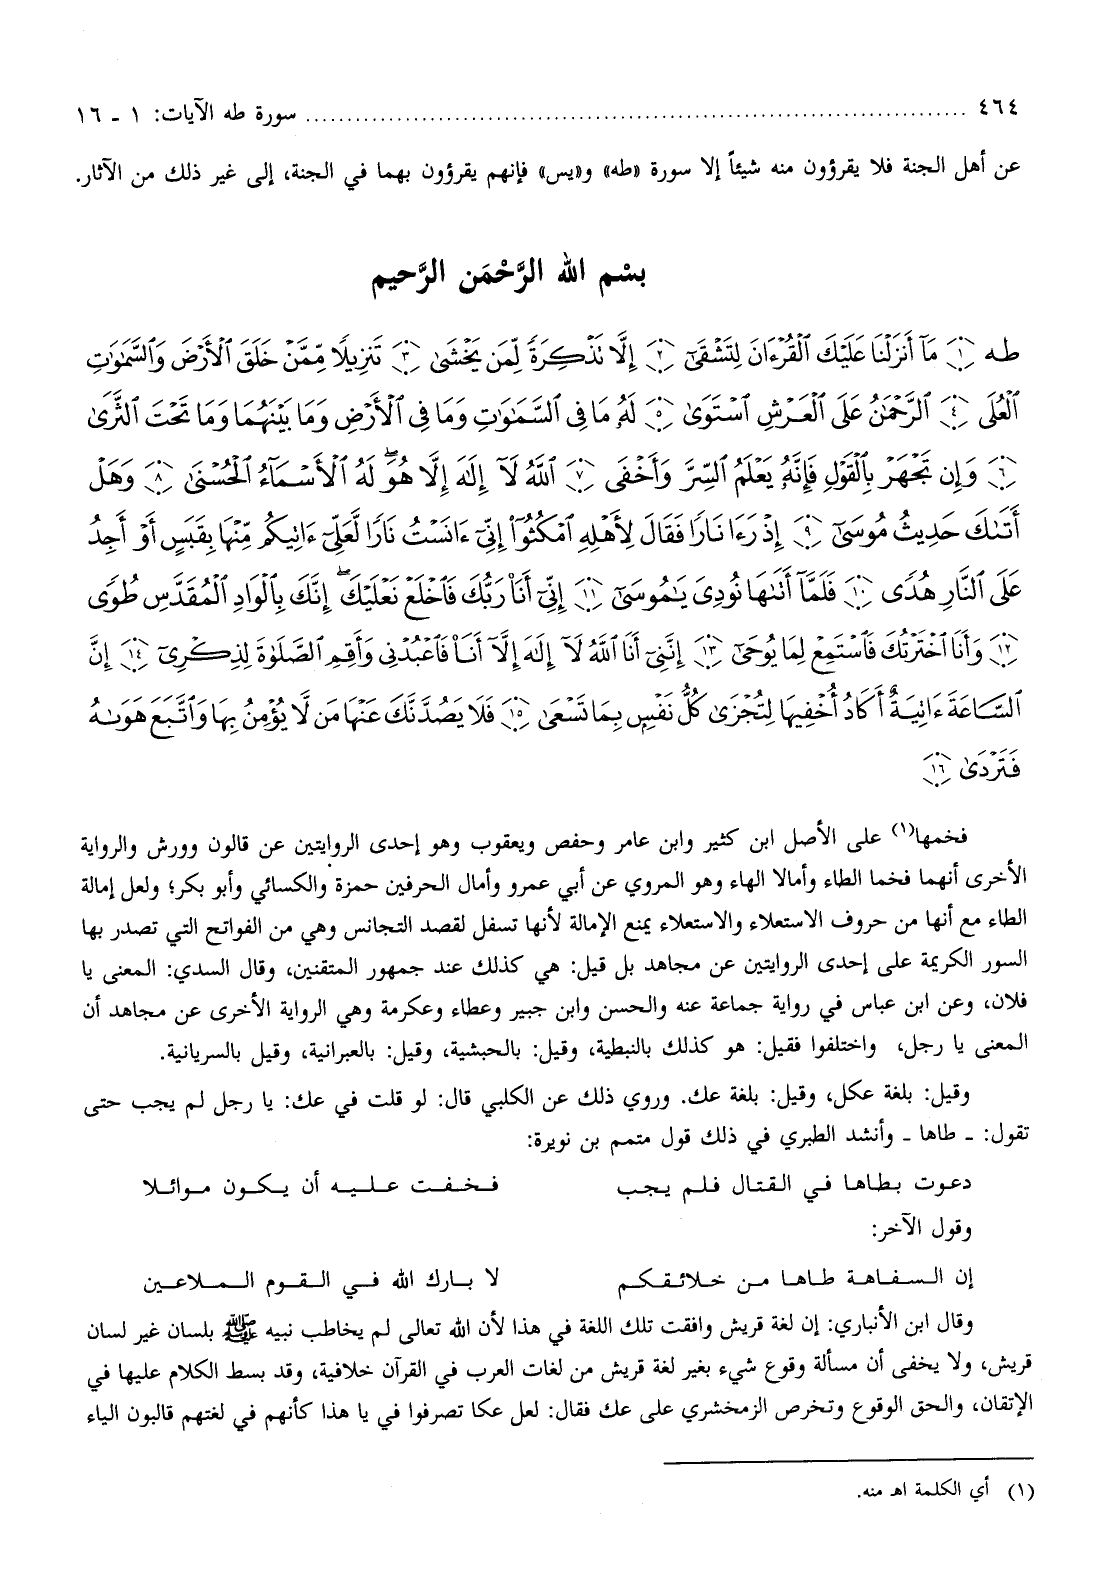 ٤٦٤ ........................................ سورة طه الآيات: ١ ـ ١٦
عن أهل الجنة فلا يقرؤون منه شيئاً إلا سورة «طه» و«يس» فإنهم يقرؤون بهما في الجنة، إلى غير ذلك من الآثار.
بسْم الله الرَّحْمَن الرَّحيم
طه ۝١ مَآ أَنزَلْنَا عَلَيْكَ ٱلْقُرْءَانَ لِتَشْقَىٰٓ ۝٢ إِلَّا تَذْكِرَةً لِّمَن يَخْشَىٰ ۝٣ تَنزِيلًا مِّمَّنْ خَلَقَ ٱلْأَرْضَ وَٱلسَّمَٰوَٰتِ
ٱلْعُلَى ۝٤ ٱلرَّحْمَٰنُ عَلَى ٱلْعَرْشِ ٱسْتَوَىٰ ۝٥ لَهُۥ مَا فِى ٱلسَّمَٰوَٰتِ وَمَا فِى ٱلْأَرْضِ وَمَا بَيْنَهُمَا وَمَا تَحْتَ ٱلثَّرَىٰ
۝٦ وَإِن تَجْهَرْ بِٱلْقَوْلِ فَإِنَّهُۥ يَعْلَمُ ٱلسِّرَّ وَأَخْفَى ۝٧ ٱللَّهُ لَآ إِلَٰهَ إِلَّا هُوَ ۖ لَهُ ٱلْأَسْمَآءُ ٱلْحُسْنَىٰ ۝٨ وَهَلْ
أَتَىٰكَ حَدِيثُ مُوسَىٰٓ ۝٩ إِذْ رَءَا نَارًا فَقَالَ لِأَهْلِهِ ٱمْكُثُوٓا۟ إِنِّىٓ ءَانَسْتُ نَارًا لَّعَلِّىٓ ءَاتِيكُم مِّنْهَا بِقَبَسٍ أَوْ أَجِدُ
عَلَى ٱلنَّارِ هُدًى ۝١٠ فَلَمَّآ أَتَىٰهَا نُودِىَ يَٰمُوسَىٰٓ ۝١١ إِنِّىٓ أَنَا۠ رَبُّكَ فَٱخْلَعْ نَعْلَيْكَ ۖ إِنَّكَ بِٱلْوَادِ ٱلْمُقَدَّسِ طُوًى
۝١٢ وَأَنَا ٱخْتَرْتُكَ فَٱسْتَمِعْ لِمَا يُوحَىٰٓ ۝١٣ إِنَّنِىٓ أَنَا ٱللَّهُ لَآ إِلَٰهَ إِلَّآ أَنَا۠ فَٱعْبُدْنِى وَأَقِمِ ٱلصَّلَوٰةَ لِذِكْرِىٓ ۝١٤ إِنَّ
ٱلسَّاعَةَ ءَاتِيَةٌ أَكَادُ أُخْفِيهَا لِتُجْزَىٰ كُلُّ نَفْسٍۭ بِمَا تَسْعَىٰ ۝١٥ فَلَا يَصُدَّنَّكَ عَنْهَا مَن لَّا يُؤْمِنُ بِهَا وَٱتَّبَعَ هَوَىٰهُ
فَتَرْدَىٰ ۝١٦
فخمها(١) على الأصل ابن كثير وابن عامر وحفص ويعقوب وهو إحدى الروايتين عن قالون وورش والرواية
الأخرى أنهما فخما الطاء وأمالا الهاء وهو المروي عن أبي عمرو وأمال الحرفين حمزة والكسائي وأبو بكر؛ ولعل إمالة
الطاء مع أنها من حروف الاستعلاء والاستعلاء يمنع الإمالة لأنها تسفل لقصد التجانس وهي من الفواتح التي تصدر بها
السور الكريمة على إحدى الروايتين عن مجاهد بل قيل: هي كذلك عند جمهور المتقنين، وقال السدي: المعنى يا
فلان، وعن ابن عباس في رواية جماعة عنه والحسن وابن جبير وعطاء وعكرمة وهي الرواية الأخرى عن مجاهد أن
المعنى يا رجل، واختلفوا فقيل: هو كذلك بالنبطية، وقيل: بالحبشية، وقيل: بالعبرانية، وقيل بالسريانية.
وقيل: بلغة عكل، وقيل: بلغة عك. وروي ذلك عن الكلبي قال: لو قلت في عك: يا رجل لم يجب حتى
تقول: ـ طاها ـ وأنشد الطبري في ذلك قول متمم بن نويرة:
دعوت بطاها في القتال فلم يجب فخفت عليه أن يكون موائلا
وقول الآخر:
إن السفاهة طاها من خلائقكم لا بارك الله في القوم الملاعين
وقال ابن الأنباري: إن لغة قريش وافقت تلك اللغة في هذا لأن الله تعالى لم يخاطب نبيه ﷺ بلسان غير لسان
قريش، ولا يخفى أن مسألة وقوع شيء بغير لغة قريش من لغات العرب في القرآن خلافية، وقد بسط الكلام عليها في
الإتقان، والحق الوقوع وتخرص الزمخشري على عك فقال: لعل عكا تصرفوا في يا هذا كأنهم في لغتهم قالبون الياء
(١) أي الكلمة اهـ منه.